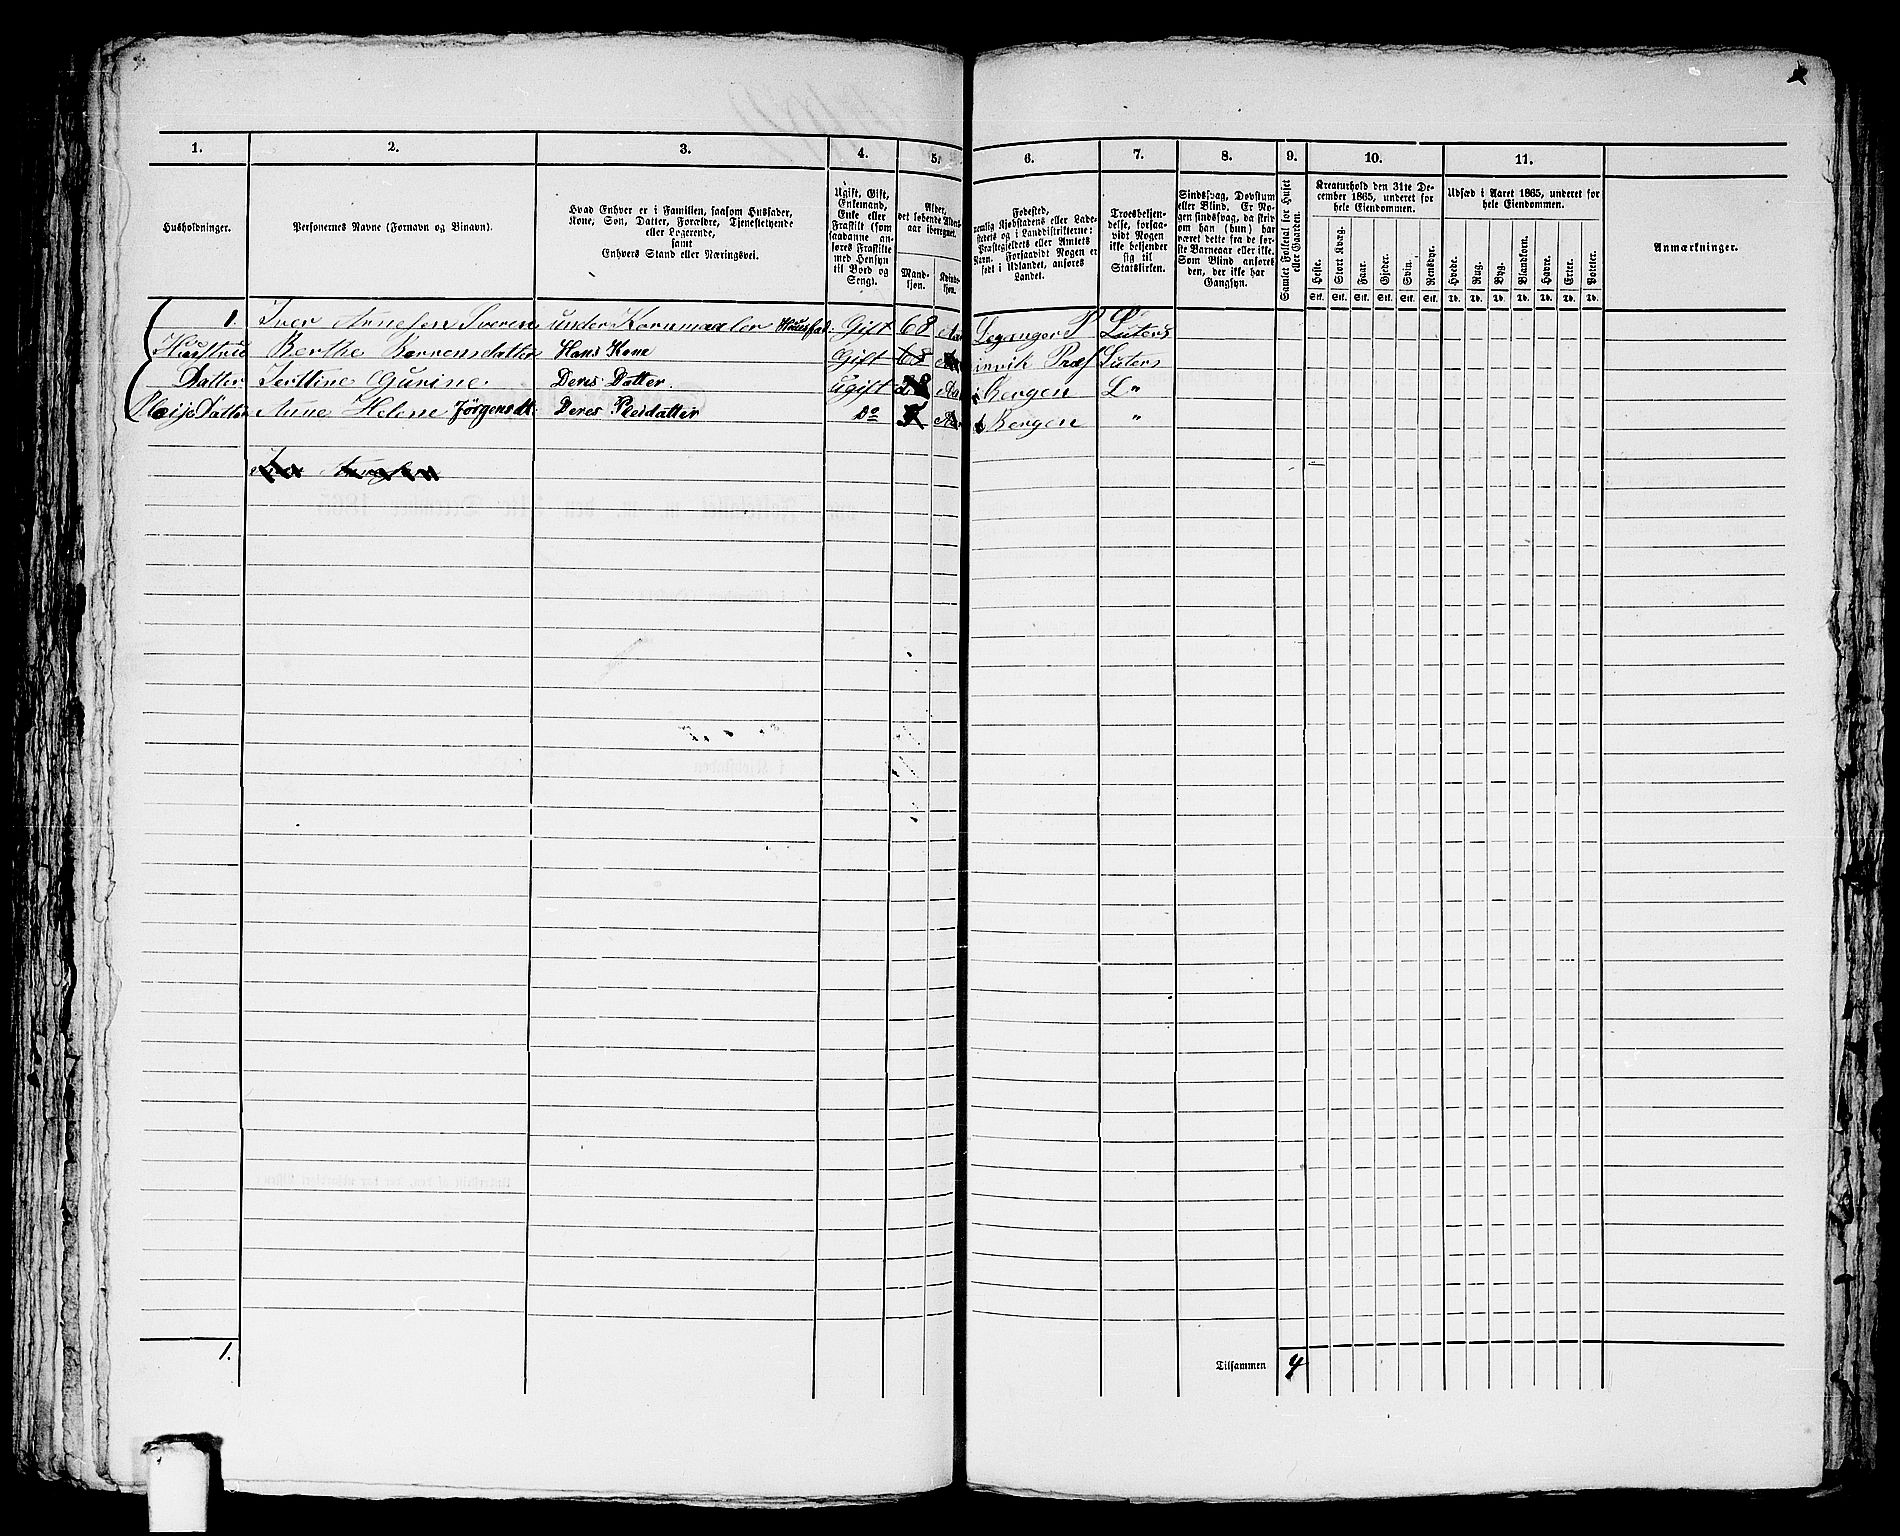 1. 2. 3. 4. 5. 6. 7. 8. 9. 10. 11.
Husholdninger.
Personernes Navne (Fornavn og Binavn).
Hvad Enhver er i Familien, saasom Husfader,
Kone, Søn, Datter, Forældre, Tjenestetyende
eller Logerende,
samt
Enhvers Stand eller Næringsvei.
Ugift, Gift,
Enkemand,
Enke eller
Fraskilt (som
saadanne an-
føres Fraskilte
med Hensyn
til Bord og
Seng).
Alder,
det løbende Alders-
aar iberegnet.
Mand-
kjøn.
Kvinde-
kjøn.
Fødested,
nemlig Kjøbstadens eller Lade-
stedets og i Landdistrikterne:
Præstegjeldets eller Amtets
Navn. Forsaavidt Nogen er
født i Udlandet, anføres
Landet.
Troesbekjen-
delse, forsaa-
vidt Nogen
ikke bekjender
sig til
Statskirken.
Sindssvag, Døvstum
eller Blind. Er No-
gen sindssvag, da skriv
om han (hun) har
været dette fra de før-
ste Barneaar eller ikke.
Som Blind anføres
den, der ikke har
Gangsyn.
Samlet Folketal for Huset
eller Gaarden.
Kreaturhold den 31te De-
cember 1865, underet for
hele Eiendommen.
Heste. Stort Kvæg. Faar. Gjeder. Svin. Rensdyr.
Stk. Stk. Stk. Stk. Stk. Stk.
Udsæd i Aaret 1865, underet for
hele Eiendommen.
Hvede. Rug. Byg. Blandkorn. Havre. Erter. Poteter.
Td. Td. Td. Td. Td. Td. Td.
Anmærkninger.
1. Iver Arnesen Sveren under Kornmaaler Huusfad. Gift 68 Aar Leganger P Luters
Hustru Berthe Bernensdatter Hans Kone Gift 68 Aar invik Præs Luters
Datter Gurine Deres Datter. ugift 28 Aar i Bergen L "
Pleije Datter Anne Helene Jörgensdt. Deres Pleidatter Do Aar Bergen "
1.
Tilsammen 4